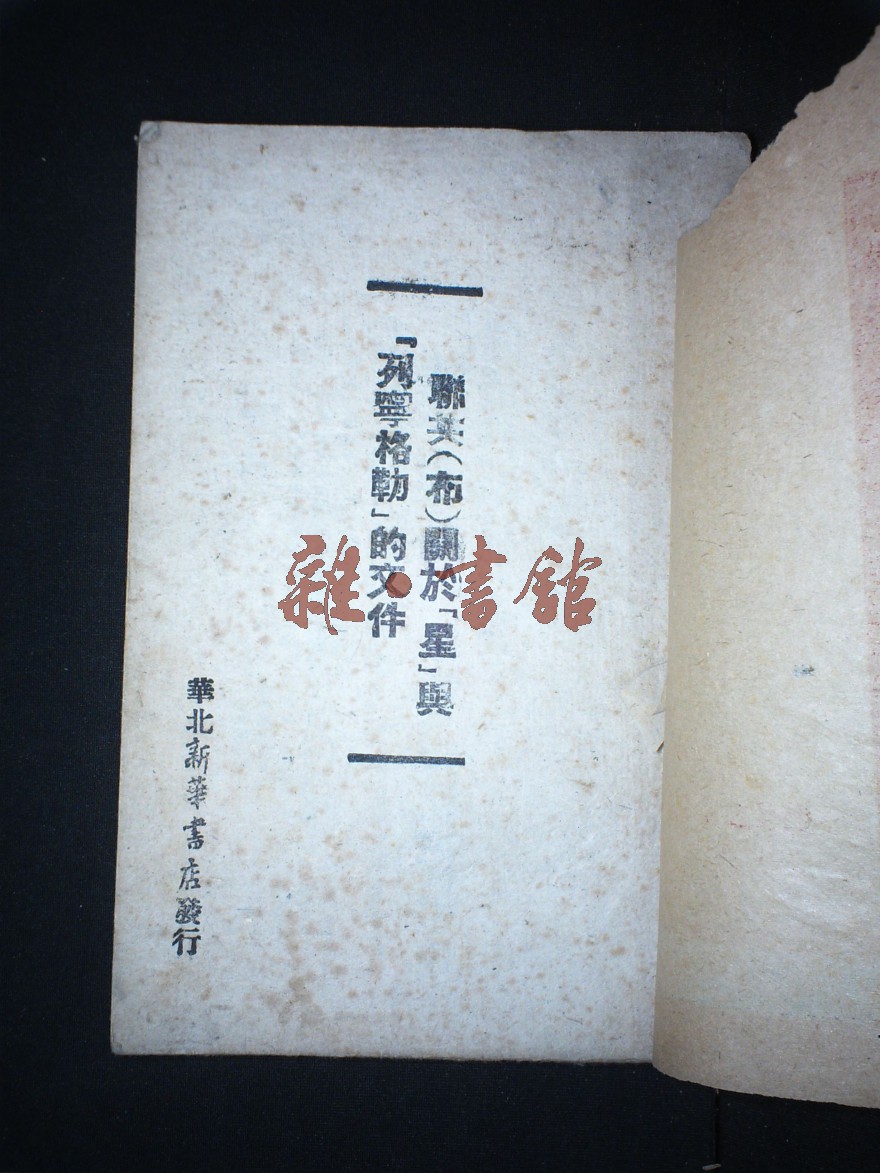 聯共（布）關於「星」與
「列寧格勒」的文件
華北新華書店發行
雜·書館